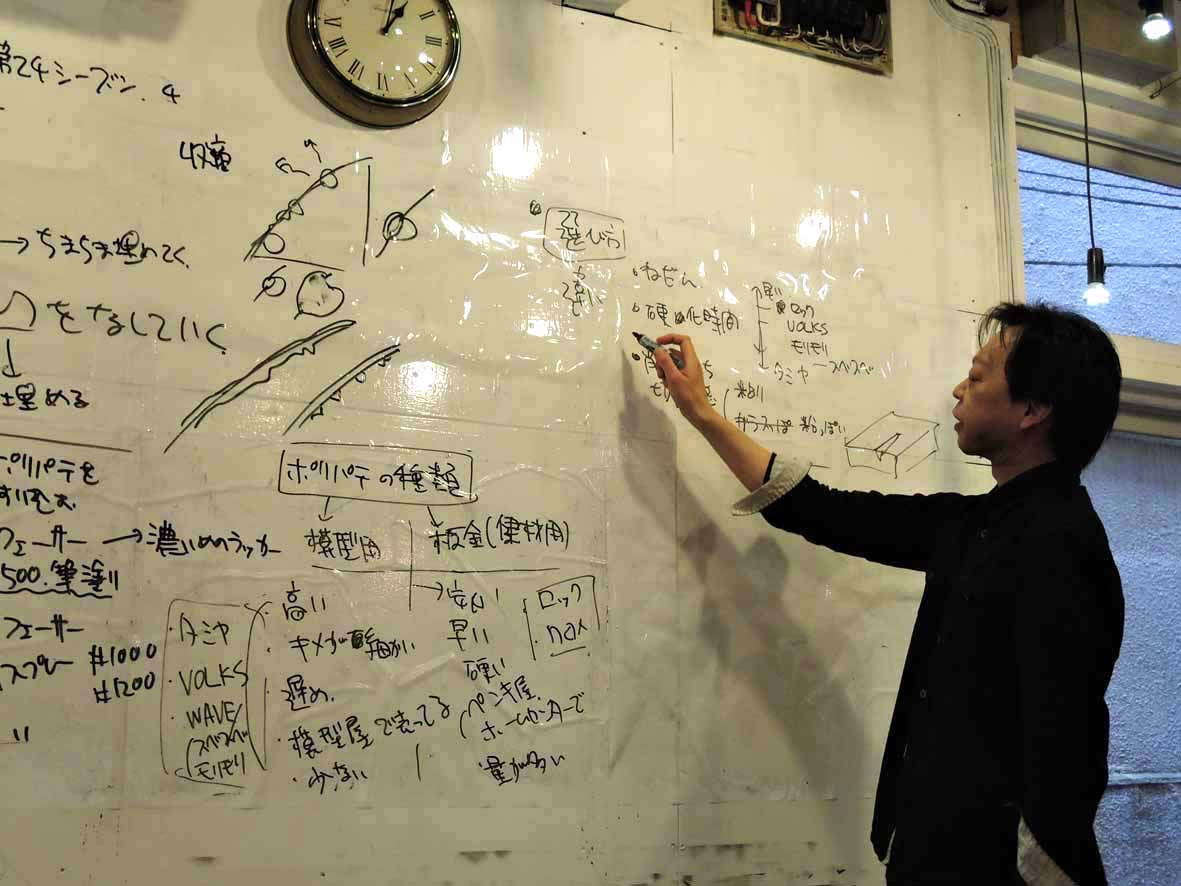 第24シーズン. 4
収縮
→ ちまちま埋めてく
をならしていく
埋める
ポリパテを
フェーサー → 濃いめのラッカー
500. 筆塗り
フェーサー
スプレー #1000
#1200
〃
ポリパテの種類
模型用
板金(建材用)
・タミヤ
・VOLKS
・WAVE
スベスベ
モリモリ
・高い
・キメが細かい
・遅め.
・模型屋で売ってる
・少ない
→ 安い
早い
硬い
ペンキ屋.
ホームセンターで
量が多い
ロック
・nax
選び方
違い
・ねだん
・硬化時間
早い
ロック
VOLKS
モリモリ
タミヤ ー スベスベ
粉っぽい